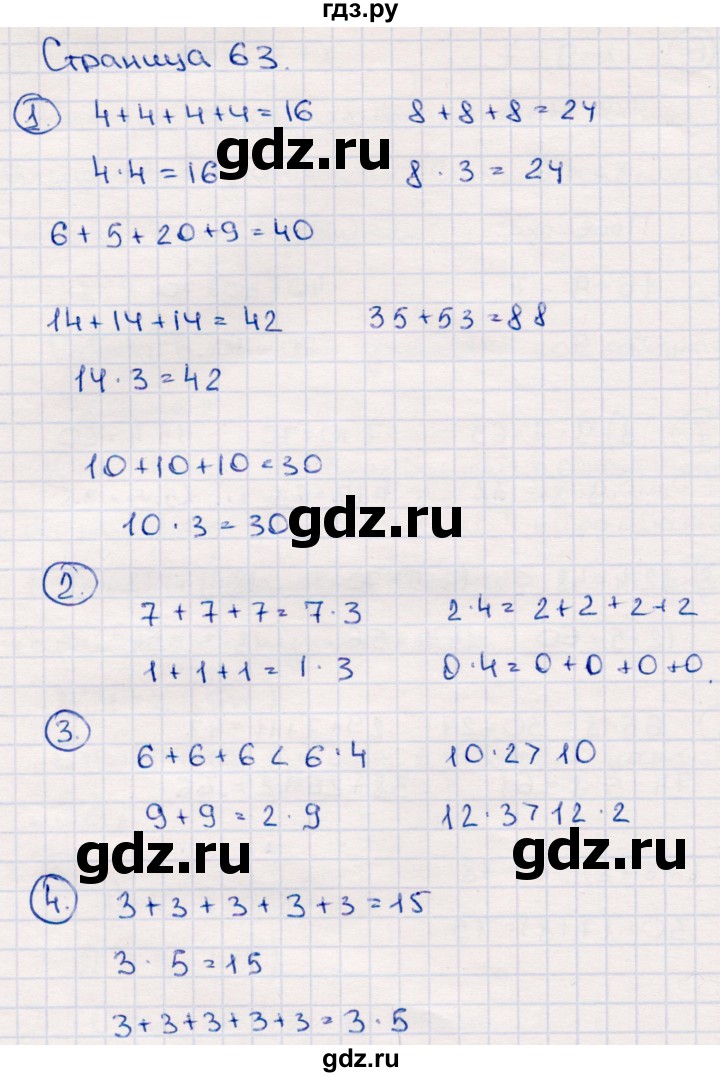 гдз.ру
Страница 63.
1. 4+4+4+4=16 8+8+8=24
gdz.ru
4·4=16 8·3=24
6+5+20+9=40
14+14+14=42 35+53=88
14·3=42
10+10+10=30
10·3=30
gdz.ru
2.
7+7+7=7·3 2·4=2+2+2+2
1+1+1=1·3 0·4=0+0+0+0.
3.
6+6+6<6·4 10·2>10
9+9=2·9 12·3>12·2
gdz.ru gdz.ru
4. 3+3+3+3+3=15
3·5=15
3+3+3+3+3=3·5
gdz.ru